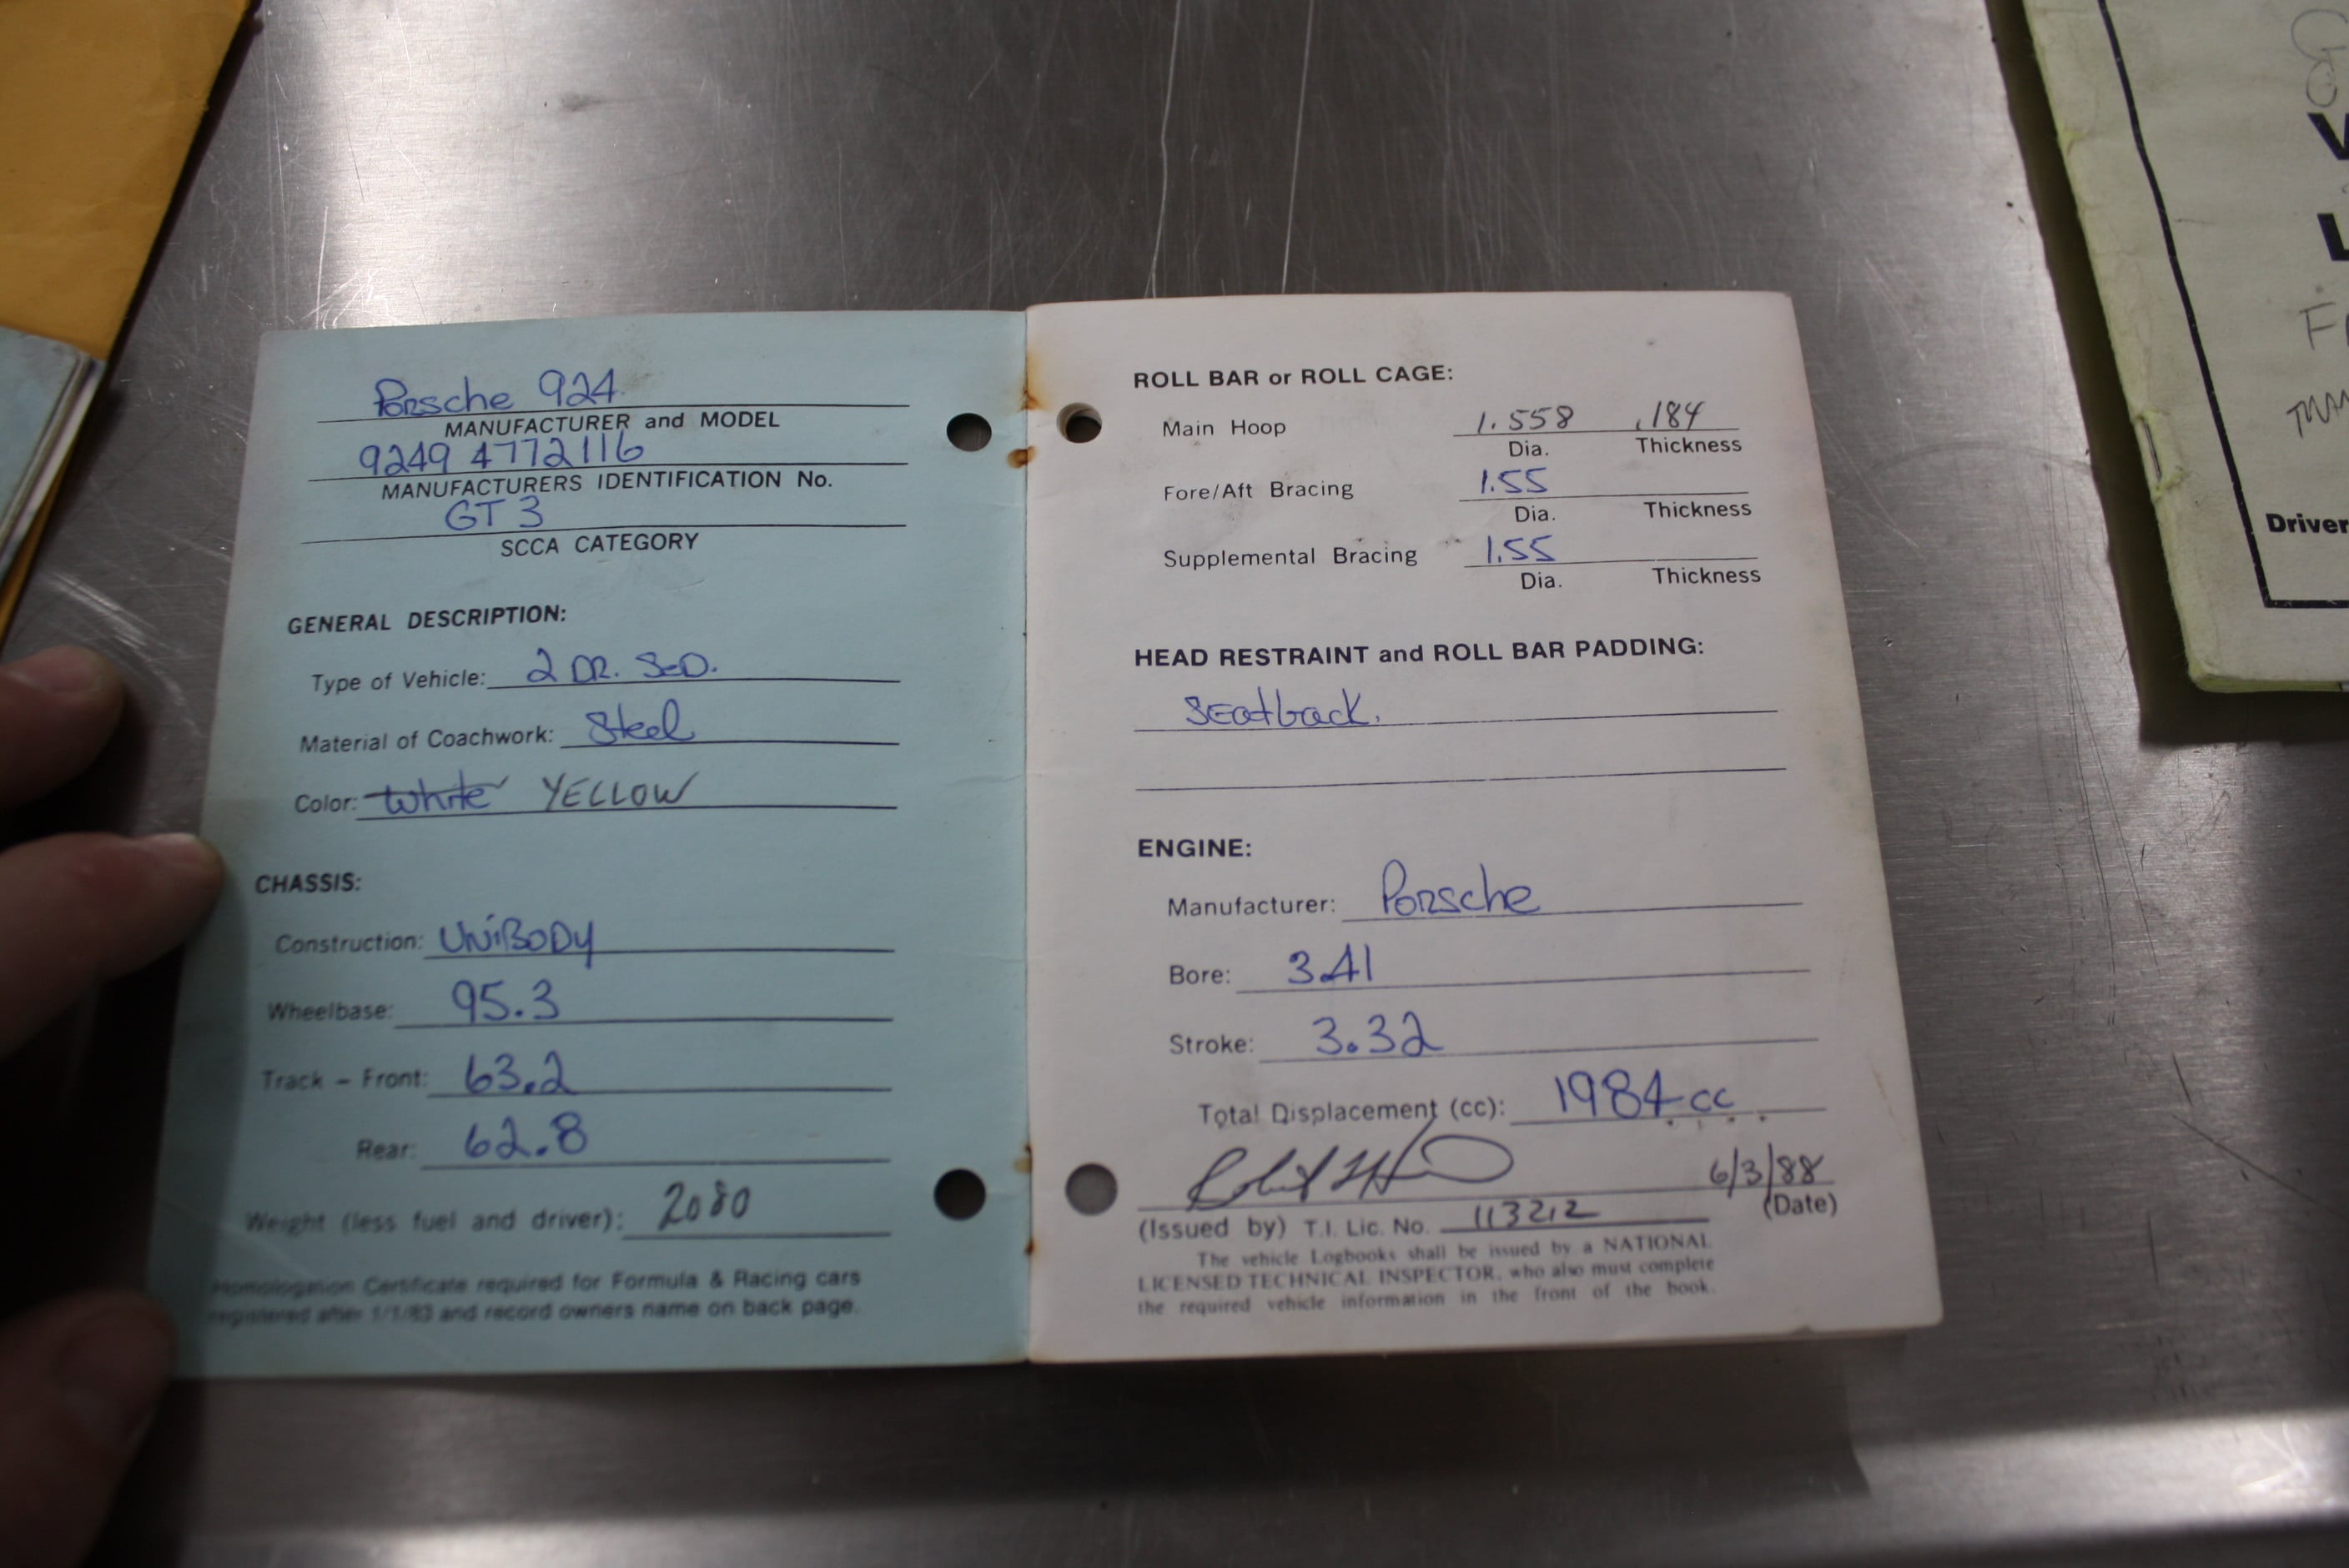 Porsche 924
MANUFACTURER and MODEL
9249 4772116
MANUFACTURERS IDENTIFICATION No.
GT 3
SCCA CATEGORY
GENERAL DESCRIPTION:
Type of Vehicle: 2 DR. SED.
Material of Coachwork: Steel
Color: White YELLOW
CHASSIS:
Construction: UNiBODY
Wheelbase: 95.3
Track – Front: 63.2
Rear: 62.8
Weight (less fuel and driver): 2080
Homologation Certificate required for Formula & Racing cars
registered after 1/1/83 and record owners name on back page.
ROLL BAR or ROLL CAGE:
Main Hoop 1.558 .184
Dia. Thickness
Fore/Aft Bracing 1.55
Dia. Thickness
Supplemental Bracing 1.55
Dia. Thickness
HEAD RESTRAINT and ROLL BAR PADDING:
SEatback.
ENGINE:
Manufacturer: Porsche
Bore: 3.41
Stroke: 3.32
Total Displacement (cc): 1984 cc
6/3/88
(Issued by) T.I. Lic. No. 113212 (Date)
The vehicle Logbooks shall be issued by a NATIONAL
LICENSED TECHNICAL INSPECTOR, who also must complete
the required vehicle information in the front of the book.
Driver